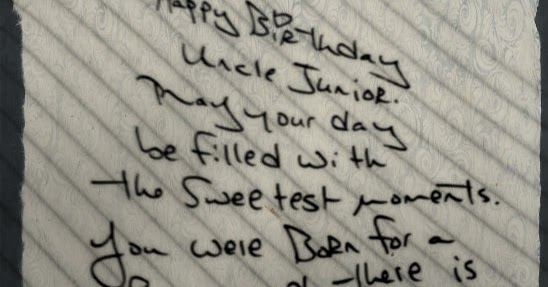 Happy Birthday
Uncle Junior.
May your day
be filled with
the Sweetest moments.
You were Born for a
there is